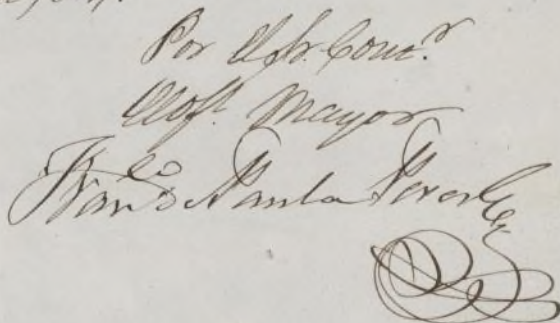 Por el Sr. Com.r
el Of.l Mayor
Fran.co de Paula